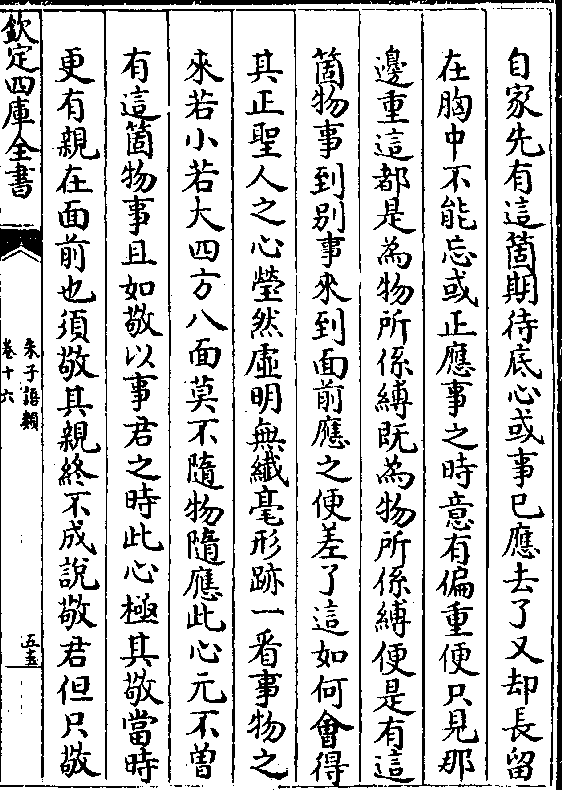 自家先有這箇期待底心或事已應去了又却長留
在胸中不能忘或正應事之時意有偏重便只見那
邊重這都是為物所係縛既為物所係縛便是有這
箇物事到别事來到面前應之便差了這如何會得
其正聖人之心瑩然虛明無纎毫形跡一看事物之
來若小若大四方八面莫不隨物隨應此心元不曾
有這箇物事且如敬以事君之時此心極其敬當時
更有親在面前也須敬其親終不成說敬君但只敬
欽定四庫全書
朱子語類
卷十六
五十五